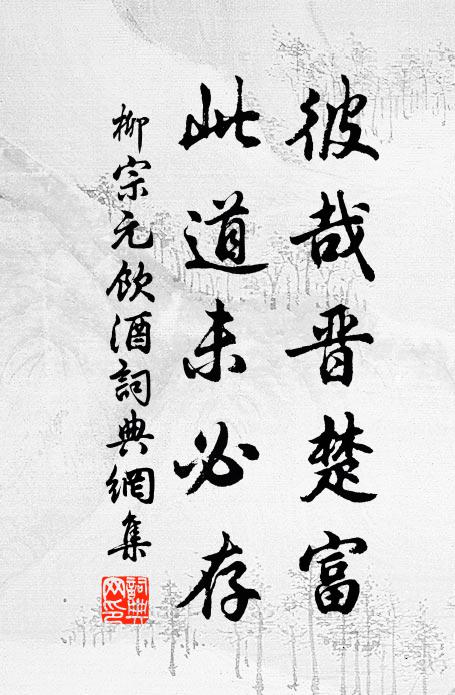 彼哉晋楚富
此道未必存
柳宗元飲酒詞典網集
詞典
网印